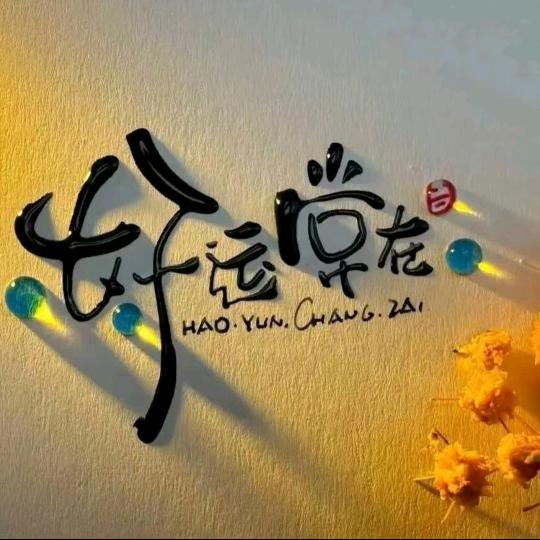 好运常在
HAO·YUN.CHANG.ZAI